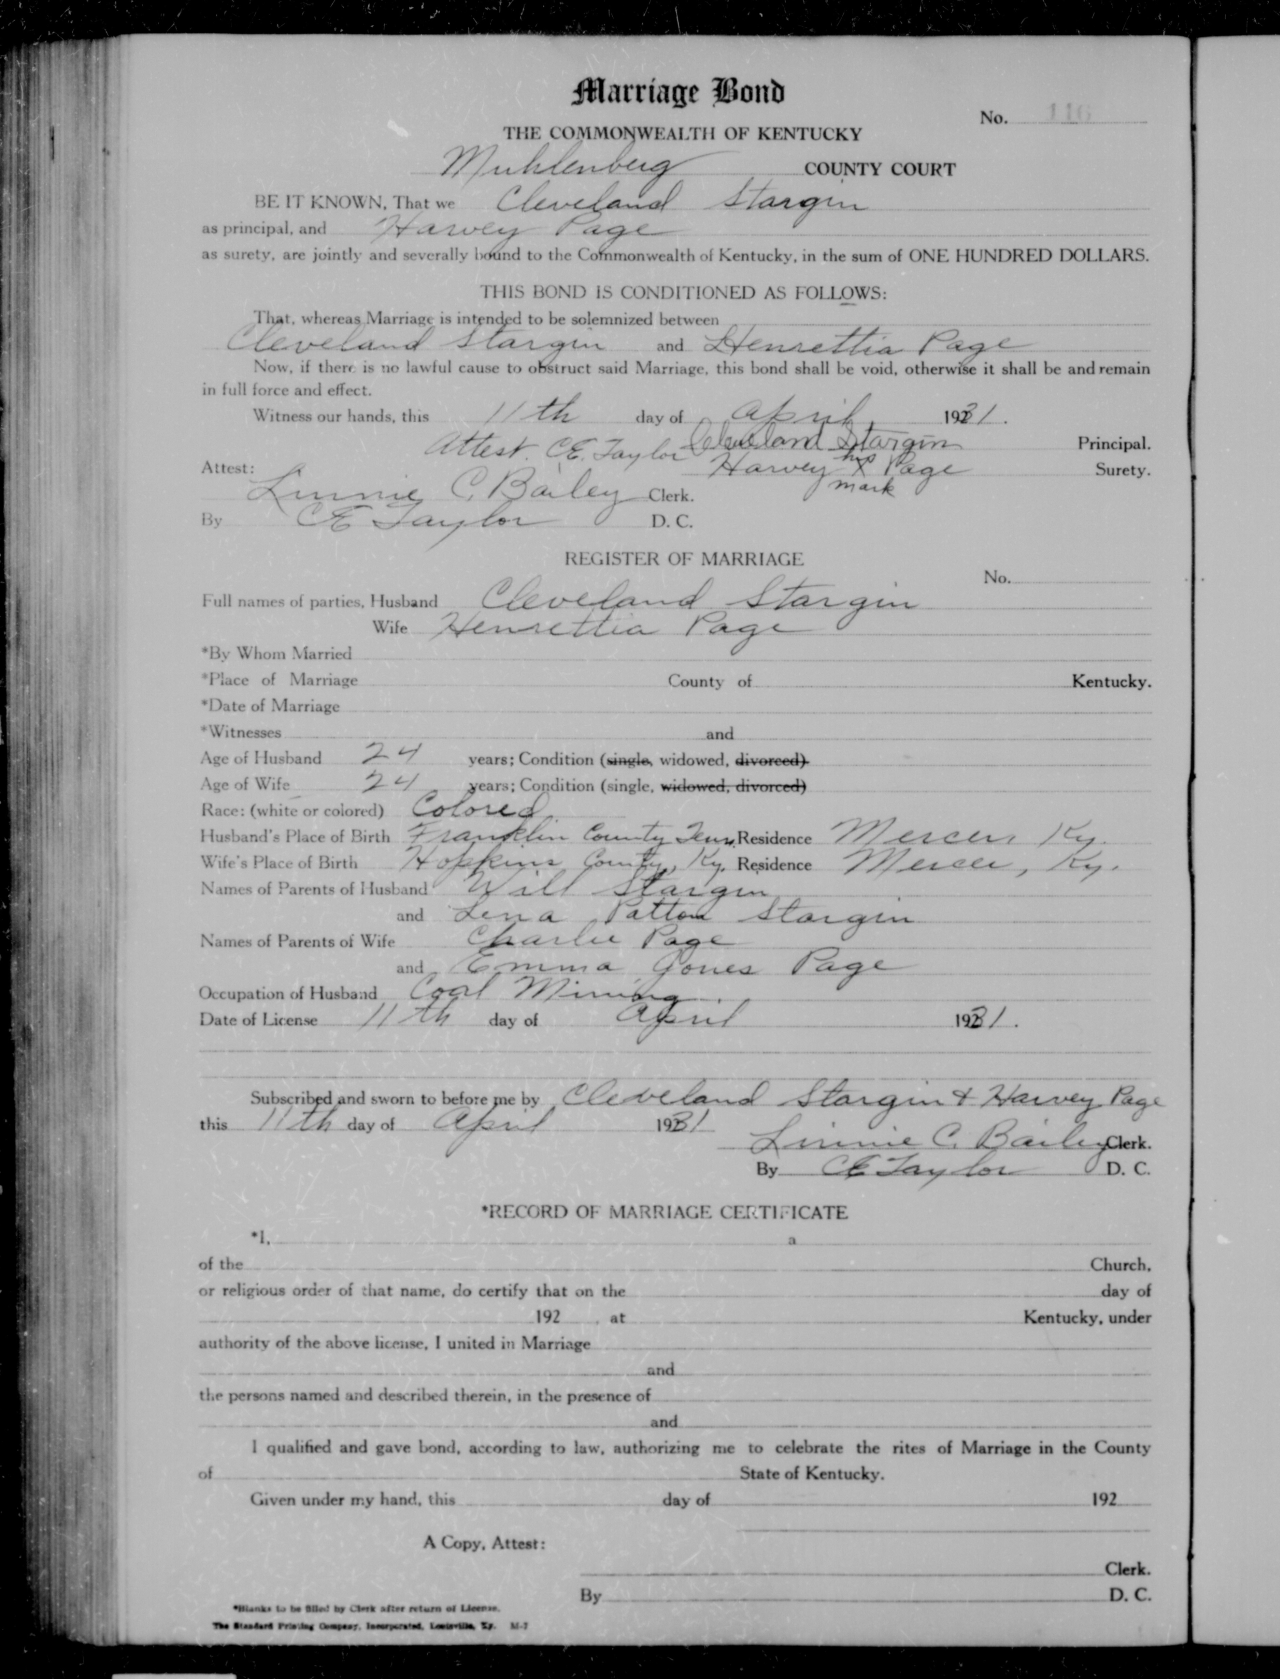 Marriage Bond
No. 116
THE COMMONWEALTH OF KENTUCKY
Muhlenberg COUNTY COURT
BE IT KNOWN, That we Cleveland Stargin
as principal, and Harvey Page
as surety, are jointly and severally bound to the Commonwealth of Kentucky, in the sum of ONE HUNDRED DOLLARS.
THIS BOND IS CONDITIONED AS FOLLOWS:
That, whereas Marriage is intended to be solemnized between
Cleveland Stargin and Henrettia Page
Now, if there is no lawful cause to obstruct said Marriage, this bond shall be void, otherwise it shall be and remain
in full force and effect.
Witness our hands, this 11th day of April 1931.
Attest. CE. Taylor Cleveland Stargin Principal.
Harvey his X mark Page Surety.
Attest:
Linnie C. Bailey Clerk.
By CE Taylor D. C.
REGISTER OF MARRIAGE
No.
Full names of parties, Husband Cleveland Stargin
Wife Henrettia Page
*By Whom Married
*Place of Marriage County of Kentucky.
*Date of Marriage
*Witnesses and
Age of Husband 24 years; Condition (single, widowed, divorced)
Age of Wife 24 years; Condition (single, widowed, divorced)
Race: (white or colored) Colored
Husband's Place of Birth Franklin County Tenn. Residence Mercer, Ky.
Wife's Place of Birth Hopkins County, Ky. Residence Mercer, Ky.
Names of Parents of Husband Will Stargin
and Lena Patton Stargin
Names of Parents of Wife Charlie Page
and Emma Jones Page
Occupation of Husband Coal Mining.
Date of License 11th day of April 1931.
Subscribed and sworn to before me by Cleveland Stargin & Harvey Page
this 11th day of April 1931
Linnie C. Bailey Clerk.
By CE Taylor D. C.
*RECORD OF MARRIAGE CERTIFICATE
*I, a
of the Church,
or religious order of that name, do certify that on the day of
192 , at Kentucky, under
authority of the above license, I united in Marriage
and
the persons named and described therein, in the presence of
and
I qualified and gave bond, according to law, authorizing me to celebrate the rites of Marriage in the County
of State of Kentucky.
Given under my hand, this day of 192
A Copy, Attest:
Clerk.
By D. C.
*Blanks to be filled by Clerk after return of License.
The Standard Printing Company, Incorporated, Louisville, Ky. M-7